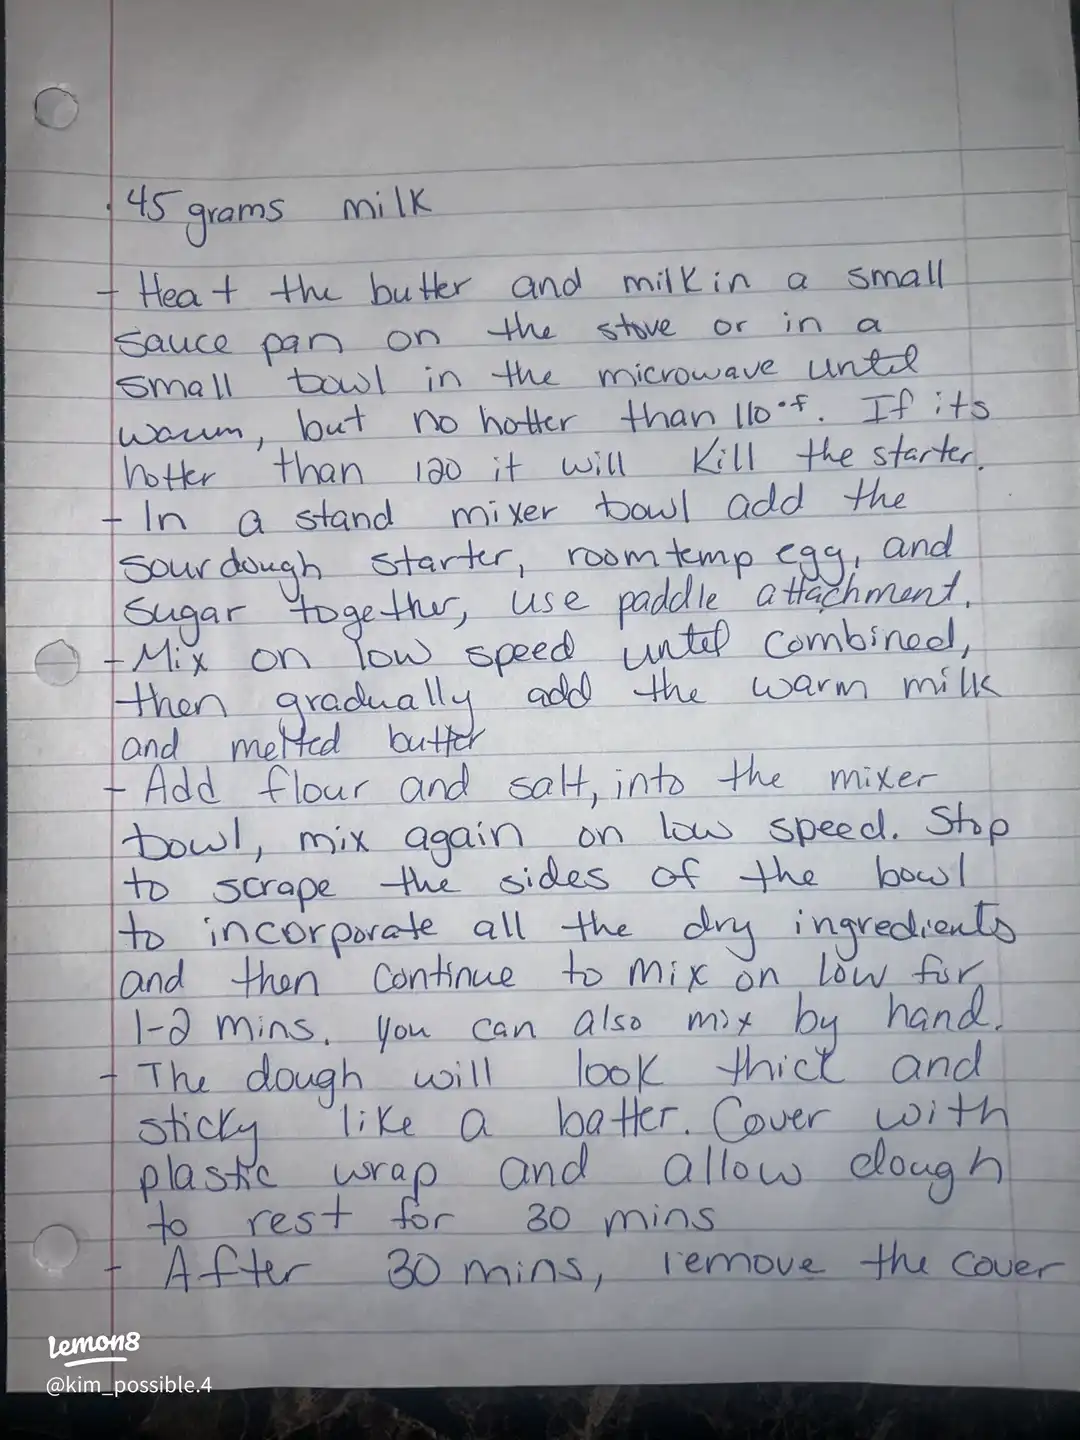 · 45 grams milk
- Heat the butter and milk in a small
sauce pan on the stove or in a
small bowl in the microwave until
warm, but no hotter than 110°f. If its
hotter than 120 it will kill the starter.
- In a stand mixer bowl add the
sourdough starter, room temp egg, and
sugar together, use paddle attachment.
- Mix on low speed until combined,
then gradually add the warm milk
and melted butter
- Add flour and salt, into the mixer
bowl, mix again on low speed. Stop
to scrape the sides of the bowl
to incorporate all the dry ingredients
and then continue to mix on low for
1-2 mins. you can also mix by hand.
- The dough will look thick and
sticky like a batter. Cover with
plastic wrap and allow dough
to rest for 30 mins
- After 30 mins, remove the cover
lemon8
@kim_possible.4